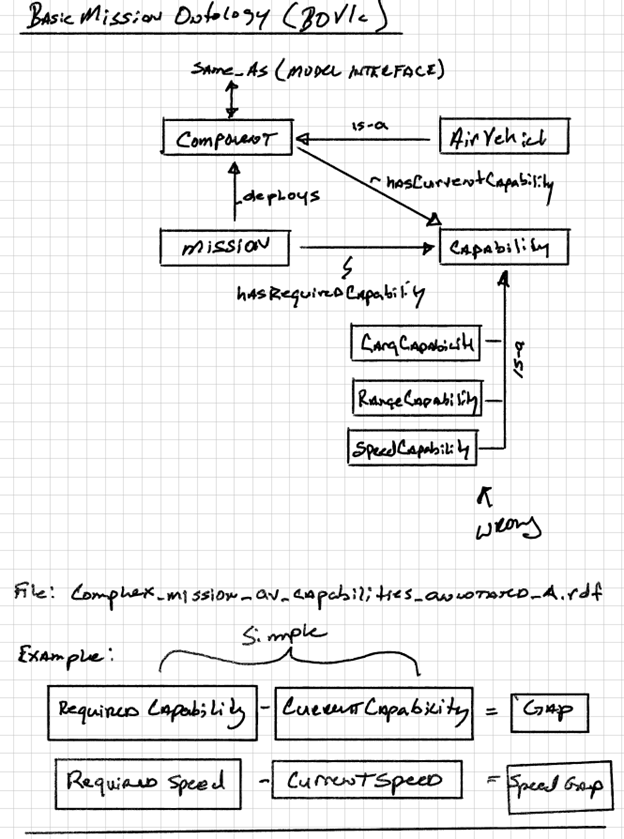 Basic Mission Ontology (BOV1c)
Same_As (Model Interface)
Component
is-a
AirVehicl
hasCurrentCapability
deploys
Mission
Capability
hasRequiredCapability
CargCapability
is-a
RangeCapability
SpeedCapability
Wrong
File: Complex_mission_av_capabilities_annotated_A.rdf
Simple
Example:
Required Capability - CurrentCapability = Gap
Required Speed - CurrentSpeed = Speed Gap